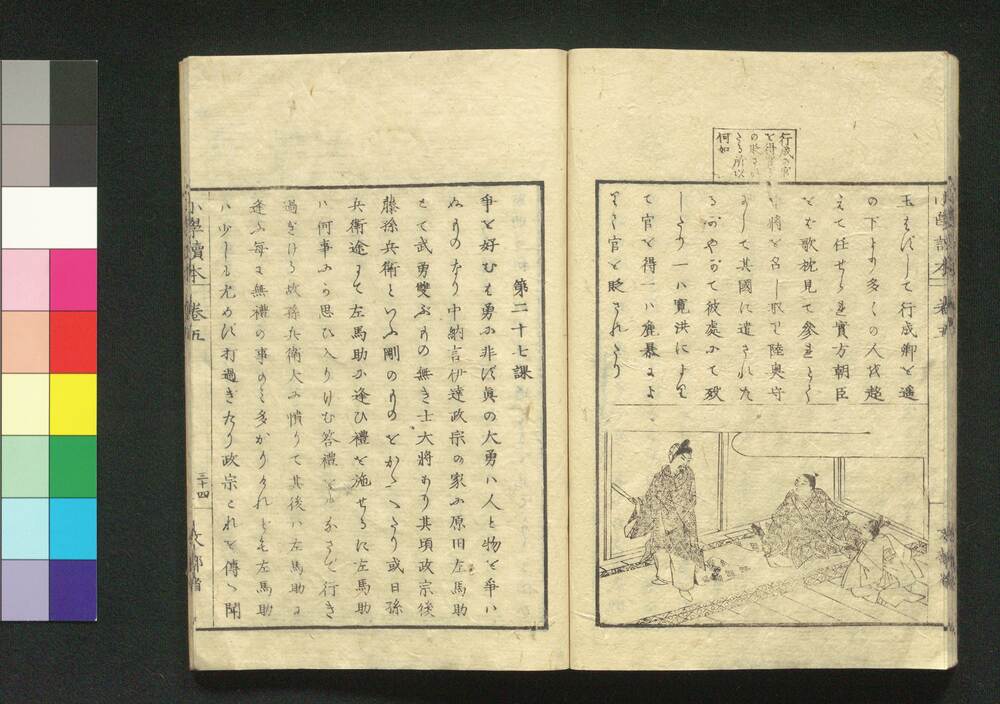 行成の官
を得實方
の貶され
たる所以
何如
玉はずして行成卿を遙
の下より多くの人を超
えて任せられ實方朝臣
をば歌枕見て參れとて
中將を名し取て陸奥守
になして其國に遣された
るがやがて彼處にて歿
したり一ハ寛洪により
て官を得一ハ麁暴によ
りて官を貶されたり
小學讀本 卷五
第二十七課
爭を好むも勇に非ず眞の大勇ハ人と物を爭ハ
ぬものなり中納言伊達政宗の家に原田左馬助
とて武勇雙ぶもの無き士大將あり其頃政宗後
藤孫兵衛といふ剛のものをかゝへたり或日孫
兵衛途にて左馬助に逢ひ禮を施せるに左馬助
ハ何事にか思ひ入りけむ答禮をもなさで行き
過ぎける故孫兵衛大に憤りて其後ハ左馬助に
逢ふ毎に無禮の事のみ多かりけれども左馬助
ハ少しも尤めず打過ぎたり政宗これを傳へ聞
小學讀本 卷五
三十四
文部省